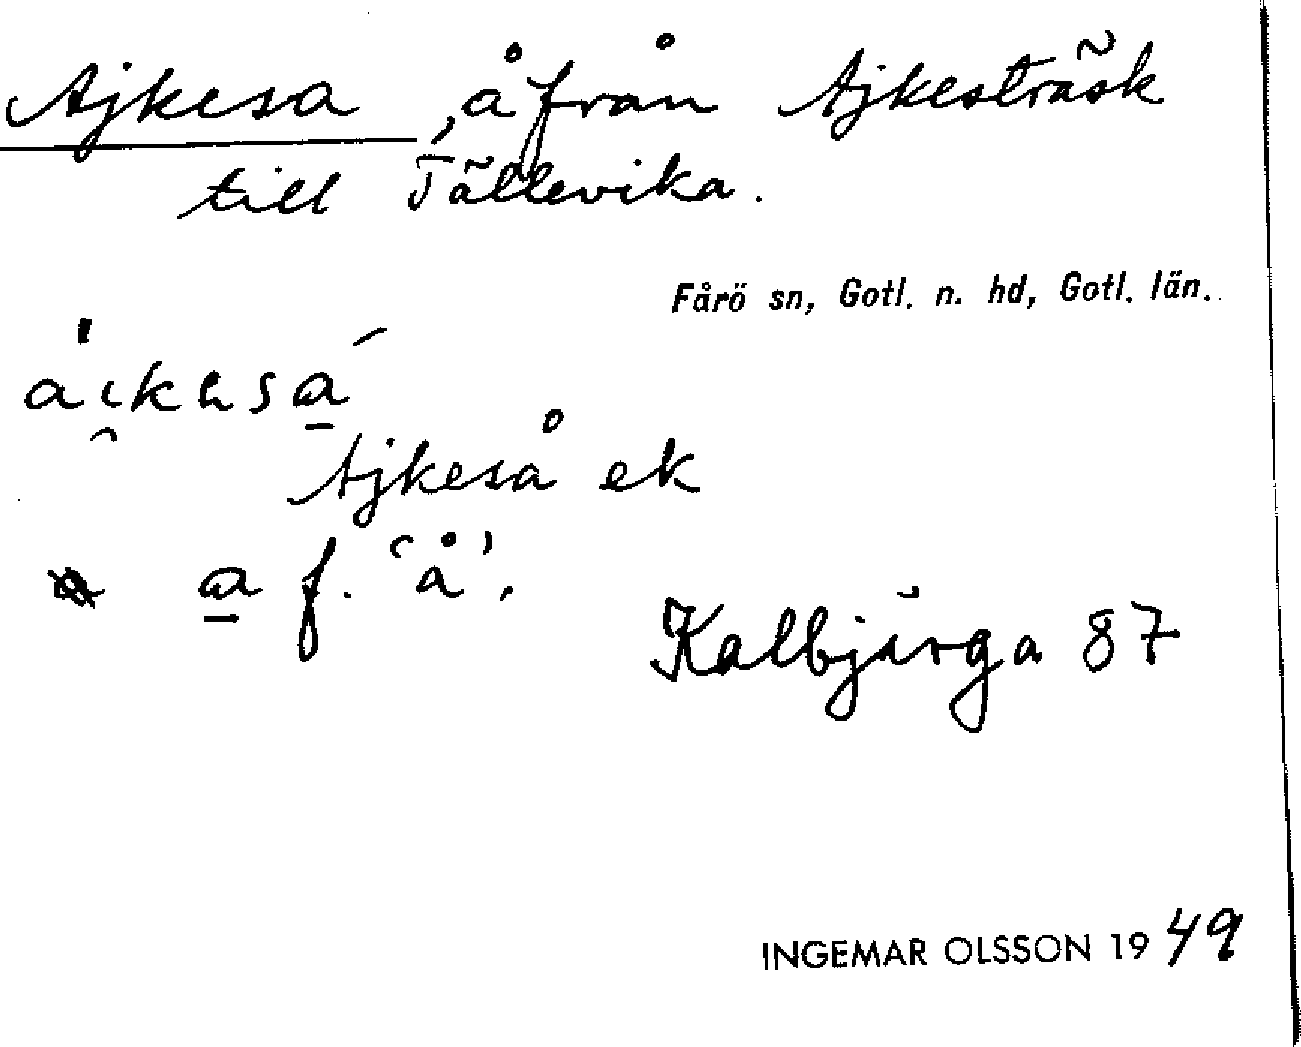 Ajkesa, å från Ajketräsk
till Tällevika.
Fårö sn, Gotl. n. hd, Gotl. län.
Ajkeså ek
a f. 'å'.
Kalbjärga 87
INGEMAR OLSSON 1949